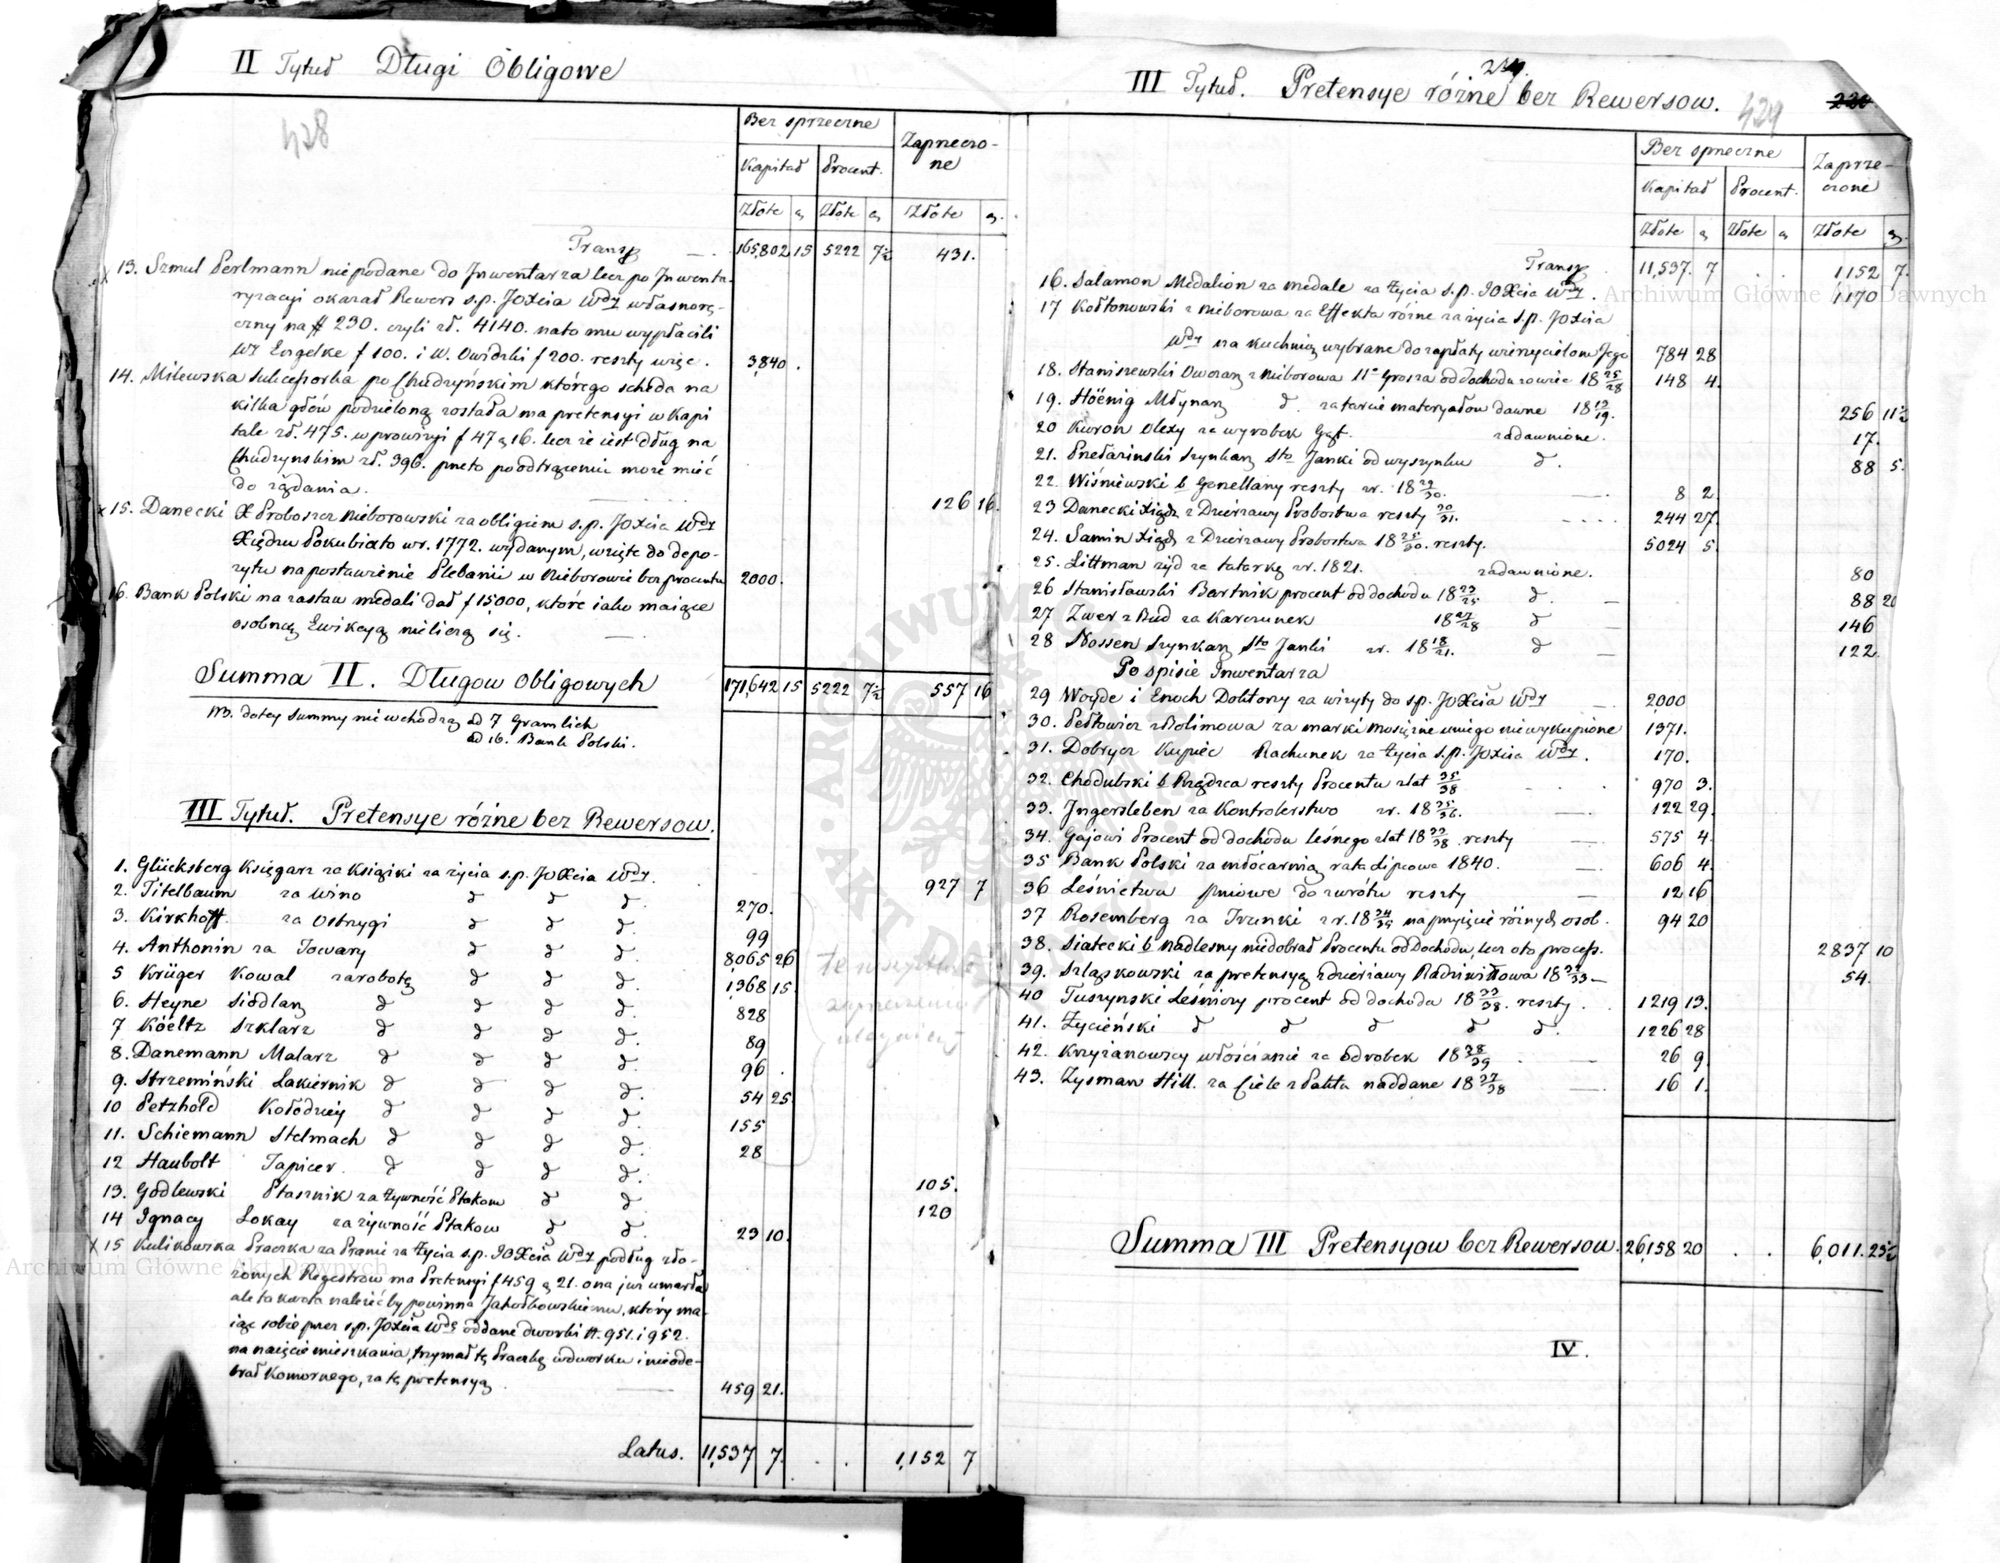 II Tytuł Długi Obligowe
428
Bez sprzeczne
Zaprzeczo-
ne
Kapitał Procent.
Złote g Złote g Złote g.
Transp 165,802 15 5222 7½ 431.
13. Szmul Perlmann niepodane do Inwentarza lecz po Inwenta-
ryzacyi okazał Rewers s.p. JOXcia Wdy własnorę-
czny na # 230. czyli zł. 4140. nato mu wypłacili
WJ Engelke f 100. i W. Owidzki f 200. reszty więc. 3,840.
14. Milewska Sukcessorka po Chudzyńskim którego scheda na
kilka głów podzieloną została ma pretensyi w Kapi
tale zł. 475. w prowizyi f 47 g 16. lecz że iest dług na
Chudzynskim zł. 396. przeto po odtrąceniu może mieć
do żądania. 126 16.
x 15. Danecki X Proboszcz Nieborowski za obligiem s.p. JOXcia Wdy
Xiędzu Pokubiato w r. 1772. wydanym, wzięte do depo-
zytu na postawienie Plebanii w Nieborowie bez procentu 2000.
16. Bank Polski na zastaw medali dał f 15,000, które iako maiące
osobną Ewikcyą nieliczą się.
Summa II. Długow Obligowych 171,642 15 5222 7½ 557 16
NB. do tey Summy nie wchodzą ad 7 Gramlich
ad 16. Bank Polski.
III Tytuł. Pretensye różne bez Rewersow.
1. Glücksberg Księgarz za Książki za życia s.p. JOXcia Wdy. 927 7
2. Titelbaum za Wino d d d. 270.
3. Kirkhoff. za Ostrygi d d d. 99
4. Anthonin za Towary d d d. 8,065 26
5 Krüger Kowal za robotę d d d. 1,368 15.
6. Heyne Siodlarz d d d d. 828
7 Köeltz Szklarz d d d d. 89
8. Danemann Malarz d d d d. 96.
9. Strzemiński Lakiernik d d d d. 54 25.
10 Petzhold Kołodziey d d d d. 155
11. Schiemann Stelmach d d d d. 28
12 Haubolt Tapicer. d d d d. 105.
13. Godlewski Ptasznik za żywność Ptakow d d. 120
14 Ignacy Lokay za żywność Ptakow d d. 23 10.
x 15 Kulikowska Praczka za Pranie za życia s.p. JOXcia Wdy podług zło-
żonych Regestrow ma Pretensyi f 459 g 21. ona już umarła
ale ta kwota należeć by powinna Jakołkowskiemu, który ma-
iąc sobie przez s.p. JOXcia Wdę oddane dworki #. 951. i 952.
na naięcie mieszkania, trzymał tę Praczkę w dworku i nieode-
brał Komornego, za tę pretensyą 459 21.
Latus. 11,537 7. . . 1,152 7
III Tytuł. Pretensye różne bez Rewersow.
429
Bez sprzeczne
Zaprze-
czone
Kapitał Procent.
Złote g Złote g Złote g.
Transp 11,537. 7 . . 1152 7.
16. Salamon Medalion za medale za życia s.p. JOXcia Wdy. 1170
17 Kołtonowski z Nieborowa za Effekta różne za życia s.p. JOXcia
Wdy na Kuchnią wybrane do zapłaty wierzycielom Jego 784 28
18. Staniszewski Dworzan z Nieborowa 11º Grosza od dochodu zowie 18 25/28 148 4.
19. Höenig Młynarz d. za tarcie materyałow dawne 18 13/19. 256 11½
20 Kuron Olexy za wyrobek Gąt. zadawnione. 17.
21. Szynkarz Sto Janki od wyszynku d. 88 5.
22. Wiśniewski b Genellany reszty zr. 18 29/30. 8 2.
23 Danecki Xiądz z Dzierżawy Probostwa reszty 30/31. 244 27.
24. Samin Xiądz z Dzierżawy Probostwa 18 25/30. reszty. 5024 5.
25. Littman żyd za tatarkę zr. 1821. zadawnione. 80
26 Stanisławski Bartnik procent od dochodu 18 23/25 d. 88 20
27 Zwer z Bud za Karczunek 18 27/28 d 146
28 Nossen Szynkarz Sto Janki zr. 18 18/21. d 122.
Po spisie Inwentarza
29 Woyde i Enoch Doktory za wizyty do s.p. JOXcia Wdy 2,000
30. Pełtowicz z Bolimowa za marki mosiężne u niego niewykupione 1371.
31. Dobrycz Kupiec Rachunek za życia s.p. JOXcia Wdy. 170.
32. Chodubski b Rządzca reszty Procentu z lat 35/38 970 3.
33. Jngersleben za Kontrolerstwo zr. 18 35/36. 122 29.
34. Gajowi Procent od dochodu leśnego z lat 18 33/38. reszty 575 4.
35 Bank Polski za młócarnią rata lipcowa 1840. 606 4.
36 Leśnictwa pniowe do zwrótu reszty 12 16
37 Rosemberg za Trunki zr. 18 34/35 na przyięcie różnych osob. 94 20
38. Siatecki b Nadleśny niedobrał Procentu od Dochodu, lecz o to process. 2837 10
39. Szląskowski za pretensyą z dzierżawy Radziwiłłowa 18 /33 54.
40 Tuszynski Leśniczy procent od dochodu 18 33/38. reszty. 1219 13.
41. Życieński d d d d d. 1226 28
42. Krzyżanowscy włościanie za odrobek 18 38/39 26 9.
43. Zysman Hill. za Ciele z Patka naddane 18 37/38 16 1.
Summa III Pretensyow bez Rewersow. 26,158 20 . . 6,011. 25½
IV.
Archiwum Główne Akt Dawnych
Archiwum Główne Akt Dawnych
ARCHIWUM GŁÓWNE AKT DAWNYCH